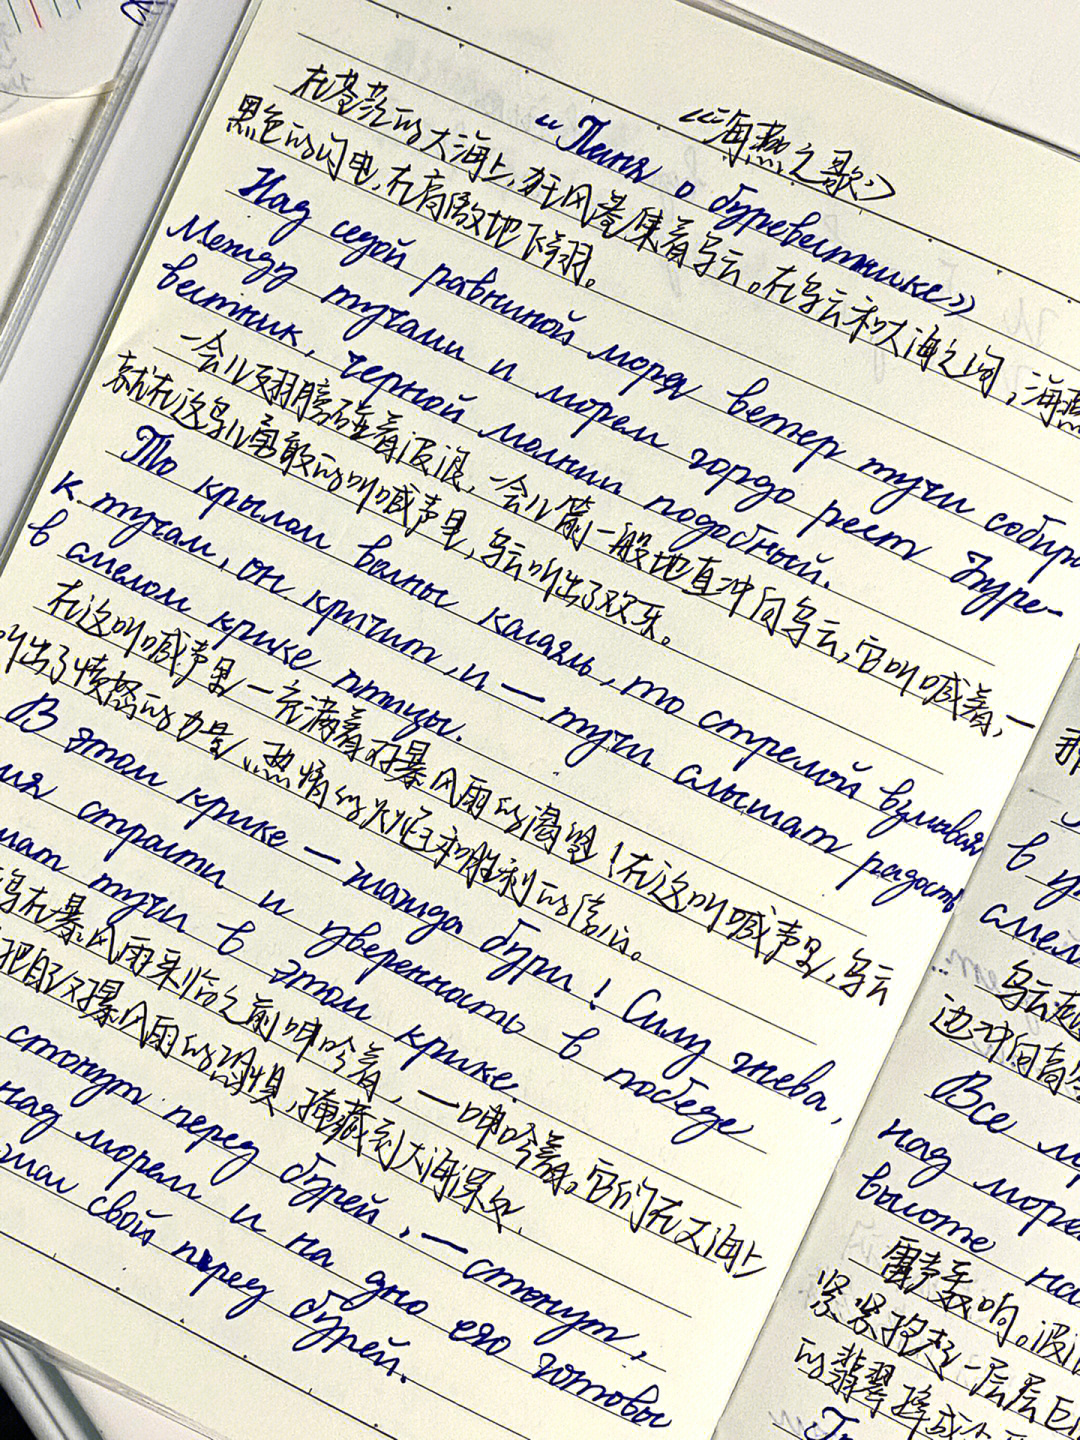 《海燕之歌》
"Песня о буревестнике》
在苍茫的大海上,狂风卷集着乌云。在乌云和大海之间,海燕
黑色的闪电,在高傲地飞翔。
Над седой равниной моря ветер тучи собира
Между тучами и морем гордо реет Буре-
вестник, черной молнии подобный.
一会儿翅膀碰着波浪,一会儿箭一般地直冲向乌云,它叫喊着,—
就在这鸟儿勇敢的叫喊声里,乌云听出了欢乐。
То крылом волны касаясь, то стрелой взмывая
к тучам, он кричит, и — тучи слышат радость
в смелом крике птицы.
在这叫喊声里—充满着对暴风雨的渴望!在这叫喊声里,乌云
听出了愤怒的力量、热情的火焰和胜利的信心。
В этом крике — жажда бури! Силу гнева,
мя страсти и уверенность в победе
шат тучи в этом крике.
鸥在暴风雨来临之前呻吟着,—呻吟着。它们在大海上
把自己对暴风雨的恐惧,掩藏到大海深处。
стонут перед бурей, — стонут,
над морем и на дно его готовы
жас свой перед бурей.
в у
смел
乌云越
边冲向高
Все м
над море
высоте на
雷声轰响。波
紧紧抱起一层层巨
的翡翠摔成